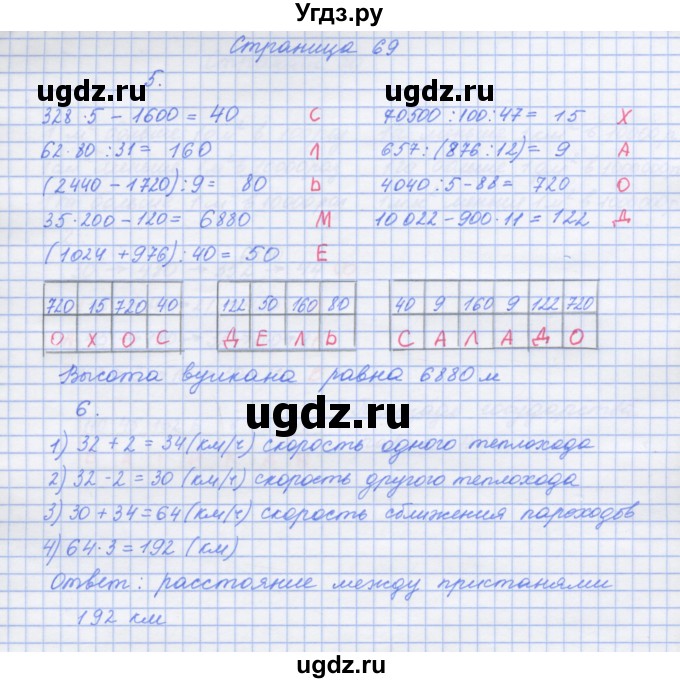 Угдз.ру
Страница 69
5.
ugdz.ru
ugdz.ru
328·5 - 1600 = 40 С
70500:100:47= 15 Х
62·80:31= 160 Л
657:(876:12)= 9 А
(2440-1720):9= 80 Ь
4040:5-88= 720 О
35·200-120= 6880 М
10022-900·11=122 Д
(1024+976):40= 50 Е
720 15 720 40
О Х О С
122 50 160 80
Д Е Л Ь
40 9 160 9 122 720
С А Л А Д О
Высота вулкана равна 6880 м
6.
ugdz.ru
1) 32+2=34 (км/ч) скорость одного теплохода
2) 32-2=30 (км/ч) скорость другого теплохода
3) 30+34=64 (км/ч) скорость сближения пароходов
4) 64·3=192 (км)
Ответ: расстояние между пристанями
192 км
ugdz.ru
ugdz.ru